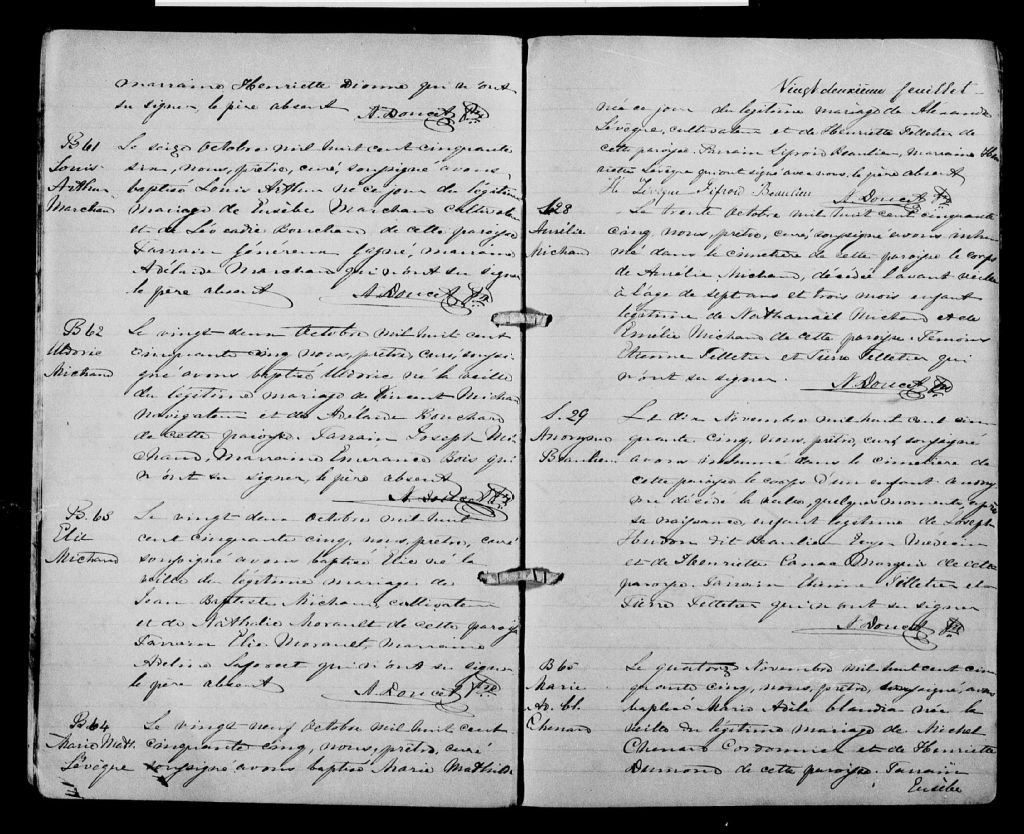 marraine Henriette Dionne qui n'ont
su signer, le père absent
A. Doucet Ptre
B 61
Louis
Arthur
Marchand
Le seize Octobre mil huit cent cinquante
cinq, nous, prêtre, curé, soussigné avons
baptisé Louis Arthur né ce jour du légitime
mariage de Eusèbe Marchand cultivateur
et de Léocadie Bouchard de cette paroisse
Parrain Généreux Gagné, marraine
Adélaide Marchand qui n'ont su signer
le père absent
A. Doucet Ptre
B 62
Michaud
Le vingt deux Octobre mil huit cent
cinquante cinq nous, prêtre, curé, soussi-
gné avons baptisé né la veille
du légitime mariage de Vincent Michaud
navigateur et de Adélaide Bouchard
de cette paroisse. Parrain Joseph Mi-
chaud, Marraine Emerance Bois qui
n'ont su signer, le père absent
A. Doucet Ptre
B. 63
Elie
Michaud
Le vingt deux Octobre mil huit
cent cinquante cinq, nous, prêtre, curé
soussigné avons baptisé Elie né la
veille du légitime mariage de
Jean Baptiste Michaud, cultivateur
et de Nathalie Morault de cette paroisse
Parrain Elie Morault, Marraine
Adeline qui n'ont su signer
le père absent
A. Doucet Ptre
B. 64
Marie Math.
Lévêque
Le vingt neuf Octobre mil huit cent
cinquante cinq, nous, prêtre, curé
soussigné avons baptisé Marie Mathilde
Vingt deuxième feuillet
née ce jour du légitime mariage de Alexandre
Lévêque, cultivateur et de Henriette Pelletier de
cette paroisse. Parrain Sifroid Beaulieu, marraine Hen
riette Lévêque qui ont signé avec nous. le père absent
H. Lévêque Sifroid Beaulieu
A. Doucet Ptre
S. 28
Aurélie
Michaud
Le trente Octobre mil huit cent cinquante
cinq, nous, prêtre, curé, soussigné avons inhu
mé dans le cimetière de cette paroisse le corps
de Aurélie Michaud, décédée l'avant veille
à l'âge de sept ans et trois mois enfant
légitime de Nathanaël Michaud et de
Emélie Michaud de cette paroisse. Témoins
Etienne Pelletier et Pierre Pelletier qui
n'ont su signer.
A. Doucet Ptre
S. 29
Anonyme
Beaulieu
Le dix Novembre mil huit cent cin
quante cinq, nous, prêtre, curé soussigné
avons inhumé dans le cimetière de
cette paroisse le corps d'un enfant anony
me décédé la veille, quelques moments après
sa naissance, enfant légitime de Joseph
Hudon dit Beaulieu Ecuyer Médecin
et de Henriette Panac Marquis de cette
paroisse. Parrain Etienne Pelletier et
Pierre Pelletier qui n'ont su signer
A. Doucet Ptre
B 65
Marie
Ad. Cl.
Chenard
Le quatorze Novembre mil huit cent cin
quante cinq, nous, prêtre, soussigné, avons
baptisé Marie Adèle Claudia née la
veille du légitime mariage de Michel
Chenard Cordonnier et de Henriette
Dumond de cette paroisse. Parrain
Eusèbe